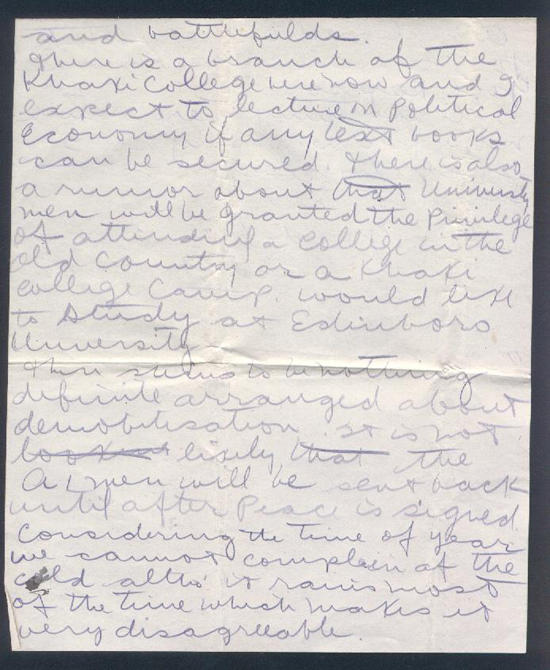 and battlefields.
There is a branch of the
Khaki College here now and I
expect to lecture in Political
Economy if any text books
can be secured. There is also
a rumor about that University
men will be granted the privilege
of attending a college in the
old country or a Khaki
college Camp. would like
to study at Edinboro
University
there seems to be nothing
definite arranged about
demobilisation. It is not
likely that the
A1 men will be sent back
until after Peace is signed
Considering the time of year
we cannot complain of the
cold altho' it rains most
of the time which makes it
very disagreeable.